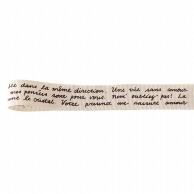 dans la même direction. Une vie sans amour
nos pensées sont pour vous. Nom oubliez-pas! Le
le cristal. Votre présence me rassure amour